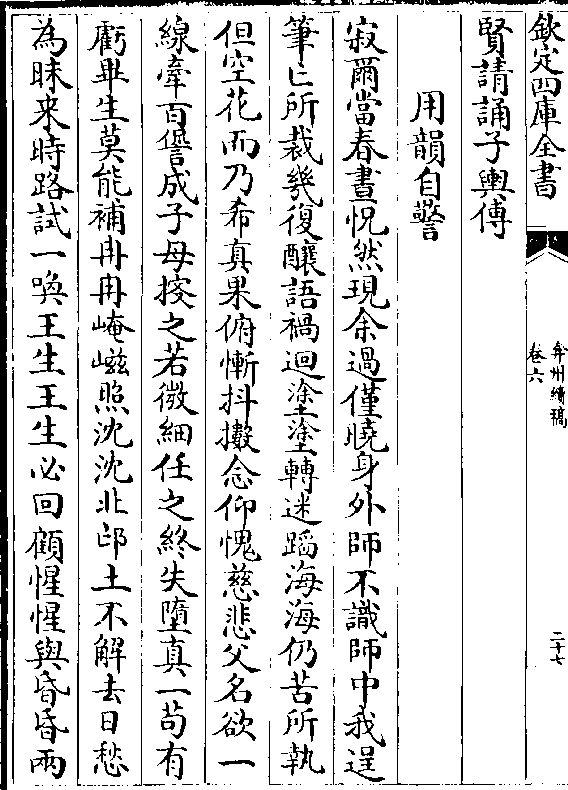 欽定四庫全書
弇州續稿
卷六
二十七
賢請誦子輿傳
用韻自警
寂爾當春晝怳然現余過僅曉身外師不識師中我逞
筆匕所裁幾復釀語禍迴塗塗轉迷蹈海海仍苦所執
但空花而乃希真果俯慚抖擻念仰愧慈悲父名欲一
線牽百訾成子母按之若微細任之終失墮真一苟有
虧畢生莫能補冉冉崦嵫照沈沈北邙土不解去日愁
為昧来時路試一喚王生王生必回顧惺惺與昏昏兩